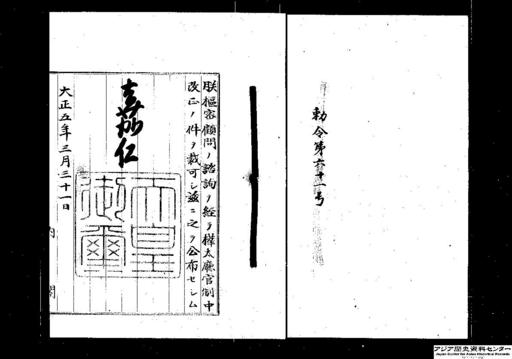 勅令第六十一号
朕樞密顧問ノ諮詢ヲ經テ樺太廳官制中
改正ノ件ヲ裁可シ茲ニ之ヲ公布セシム
嘉仁
天皇
御璽
大正五年三月三十一日
内閣
アジア歴史資料センター
Japan Center for Asian Historical Records